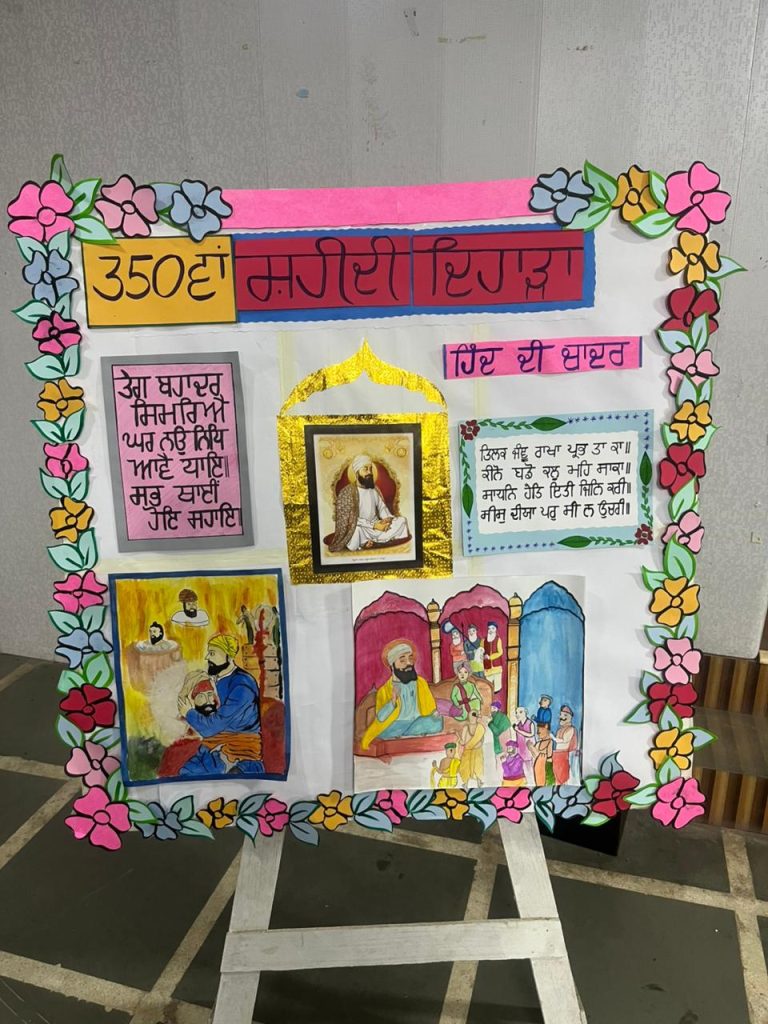 350ਵਾਂ ਸ਼ਹੀਦੀ ਦਿਹਾੜਾ
ਹਿੰਦ ਦੀ ਚਾਦਰ
ਤੇਗ ਬਹਾਦਰ
ਸਿਮਰਿਐ
ਘਰ ਨਉ ਨਿਧਿ
ਆਵੈ ਧਾਇ॥
ਸੁਭ ਥਾਈਂ
ਹੋਇ ਸਹਾਇ॥
ਤਿਲਕ ਜੰਞੂ ਰਾਖਾ ਪ੍ਰਭ ਤਾ ਕਾ॥
ਕੀਨੋ ਬਡੋ ਕਲੂ ਮਹਿ ਸਾਕਾ॥
ਸਾਧਨਿ ਹੇਤਿ ਇਤੀ ਜਿਨਿ ਕਰੀ॥
ਸੀਸੁ ਦੀਯਾ ਪਰੁ ਸੀ ਨ ਉਚਰੀ॥